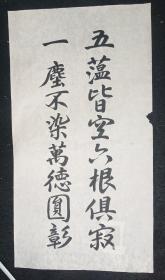 五蕰皆空六根俱寂
一塵不染萬德圓彰